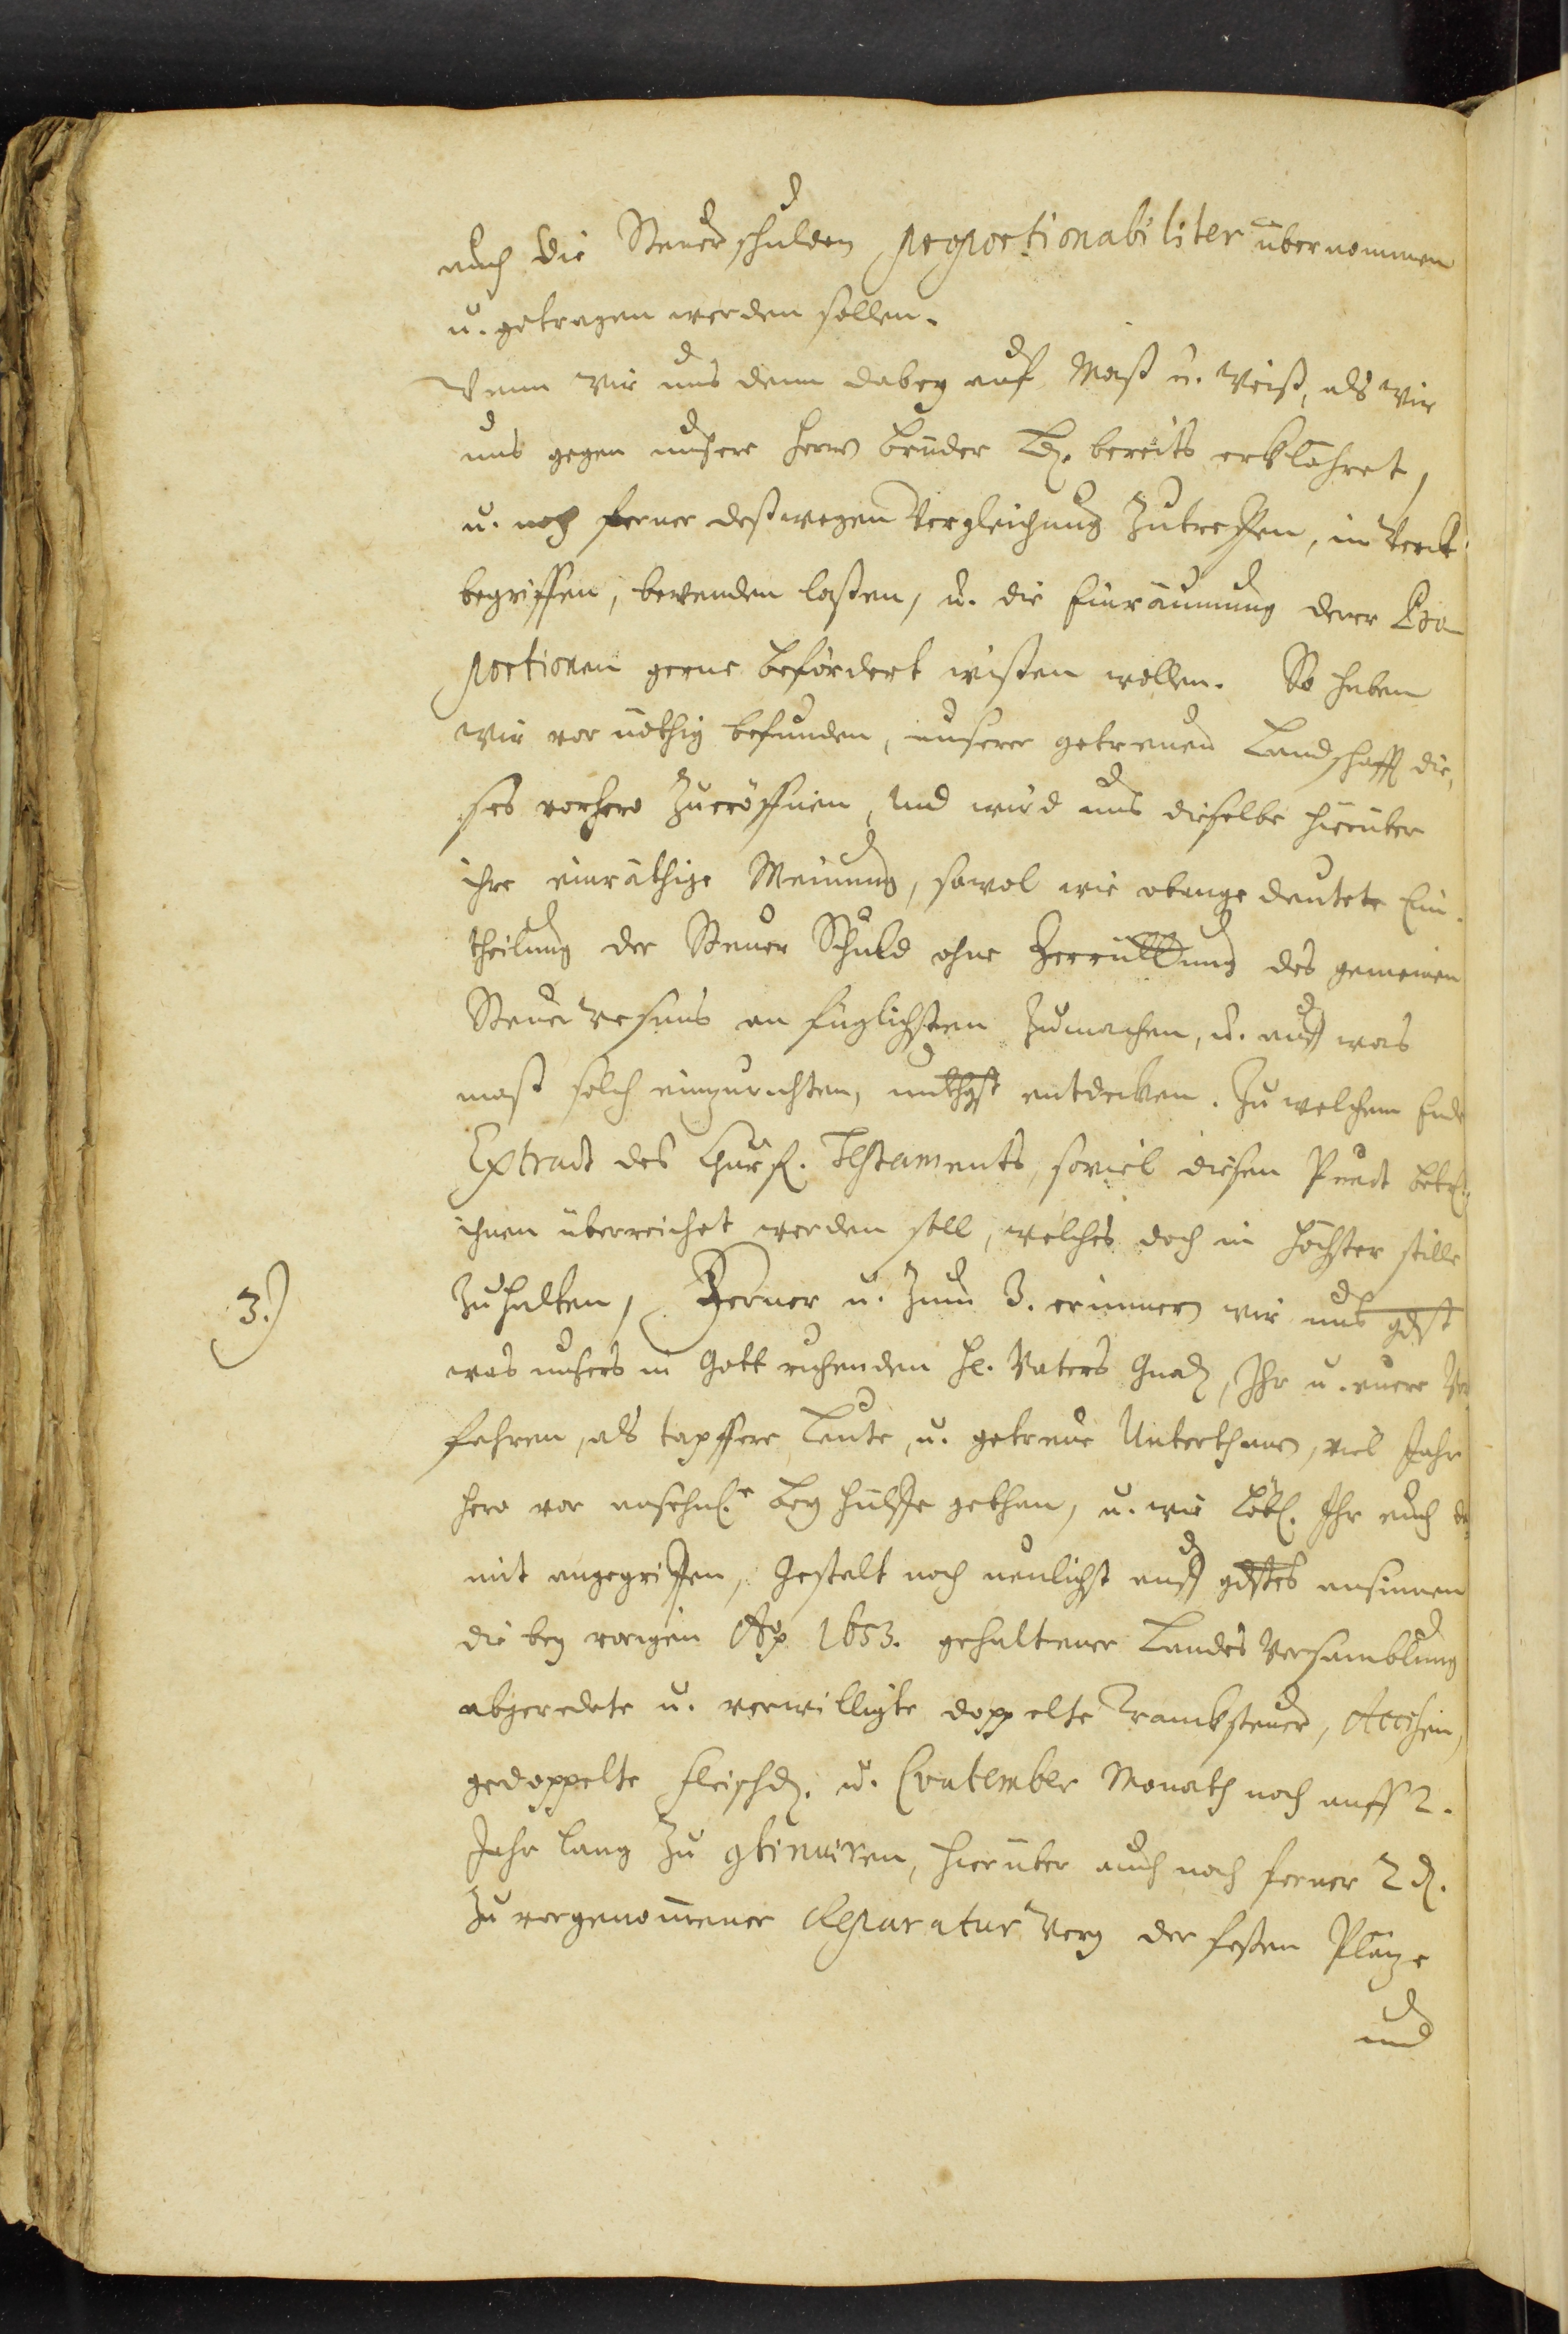 auch die Steuerschulden proportionabiliter übernommen
u. getragen werden sollen.
Wenn wir uns denn dabey auf Maß u. Weiß, als wir
uns gegen unsere Herrn Brüder Ld. bereits erklähret,
u. noch ferner deßwegen Vergleichung zutreffen, im Werck
begriffen, bewenden laßen, u. die Einräumung derer Pro-
portionen gerne befördert wißen wollen. So haben
wir vor nöthig befunden, unserer getreuen Landschafft die,
ses vorhero zueröffnen, und wird uns dieselbe hierüber
ihre einräthige Meinung, sowol wie obangedeutete Ein-
theilung der Steuer Schuld ohne Zerrüttung des gemeinen
Steuer wesens am füglichsten zumachen, u. auff was
maß solch einzurichten, unthgst entdecken. Zu welchem Ende
Extract des Churf. Testaments, soviel diesen Punct betr.
ihnen überreichet werden soll, welches doch in höchster stille
zuhalten,
3.) Ferner u. zum 3. erinnern wir uns gdst
was unsers in Gott ruhenden H. Vaters Gnad, Ihr u. euere Vor
fahren, als tapffere Leute, u. getreue Unterthanen, viel Jahr
hero vor ansehnl. Beyhülffe gethan, u. wie löbl. Ihr euch da
mit angegriffen, Gestalt noch neulichst auff gdstes ansinnen
die bey voriger Ao 1653. gehaltener Landes Versamblung
abgeredete u. verwilligte doppelte Trancksteuer, Accisen,
gedoppelte Fleischd. u. Quatember Monath noch auff 2.
Jahr lang zu continuiren, hierüber auch noch ferner 2 d.
zu vorgenommener Reparatur der festen Plätze
und